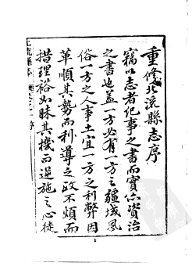 重修北流縣志序
竊以志者紀事之書而實亦資治
之書也蓋一方必有一方之疆域風
俗一方之人事土宜一方之利弊因
革順其勢而利導之政不煩而
措理裕如昧其機而逞施之心徒